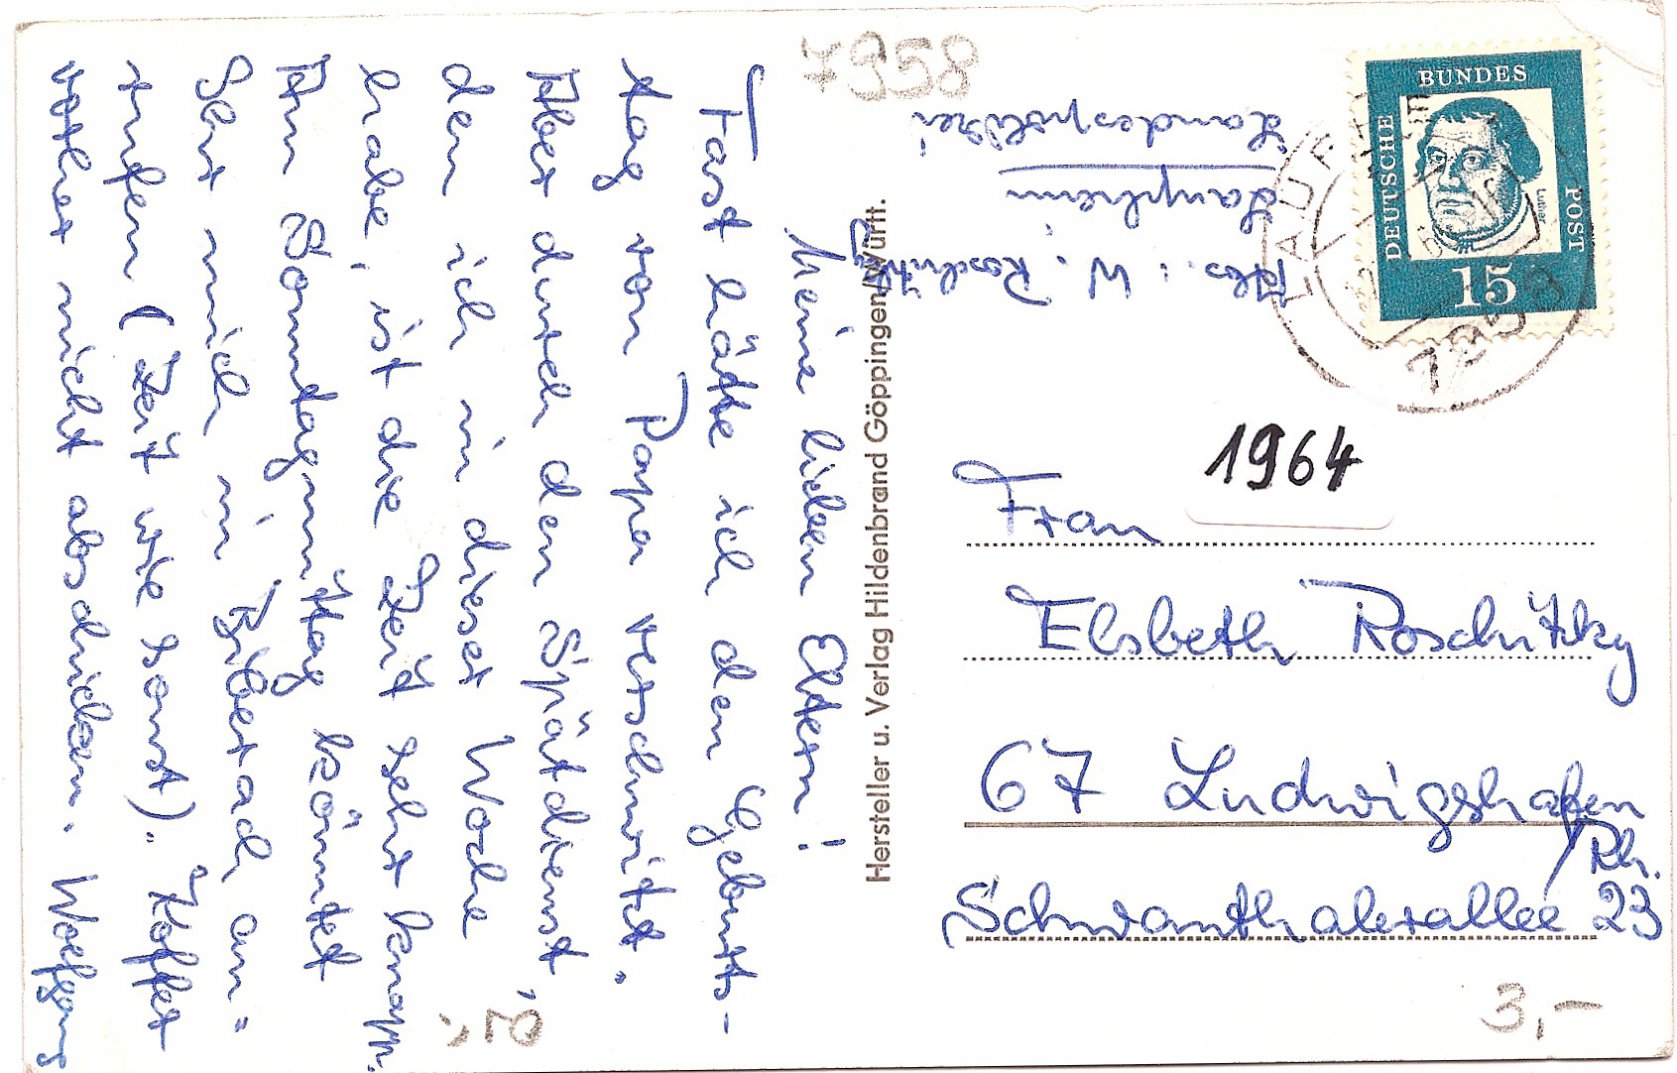 7958
Landespolizei
Laupheim
Abs.: W. Roschitzky
DEUTSCHE BUNDESPOST
Luther
15
1964
Frau
Elsbeth Roschitzky
67 Ludwigshafen
/Rh.
Schwanthalerallee 23
3,-
Hersteller u. Verlag Hildenbrand Göppingen/Württ.
Meine lieben Eltern!
Fast hätte ich den Geburts-
tag von Papa verschwitzt.
Aber durch den Spätdienst,
den ich in dieser Woche
habe, ist die Zeit sehr knapp.
Am Sonntagmittag könntet
Ihr mich in Biberach an-
rufen (Zeit wie sonst). Hoffet
vorher nicht abschicken. Wolfgang